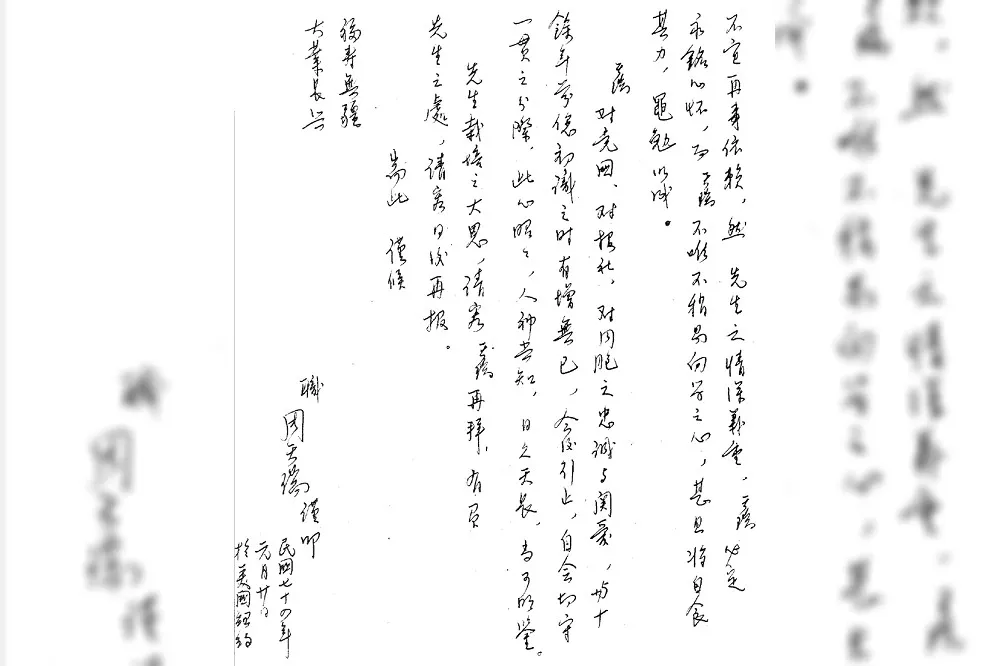 不宜再事依賴，然 先生之情深義重，天瑞必定
永銘心怀，而天瑞不唯不稍易向学之心，甚且將自食
其力，黽勉以成。
天瑞對党國、對報社、對同胞之忠誠与関愛，与十
餘年前偲初識之時有增無已，今後引止，自会切守
一貫之分際，此心昭昭，人神共知，日久天長，当可明鑒。
先生栽培之大恩，請容天瑞再拜，有負
先生之處，請容日後再报。
耑此 僅候
福寿無疆
大業長兴
職
周天瑞謹叩
民國七十四年
元月廿日
於美國紐約